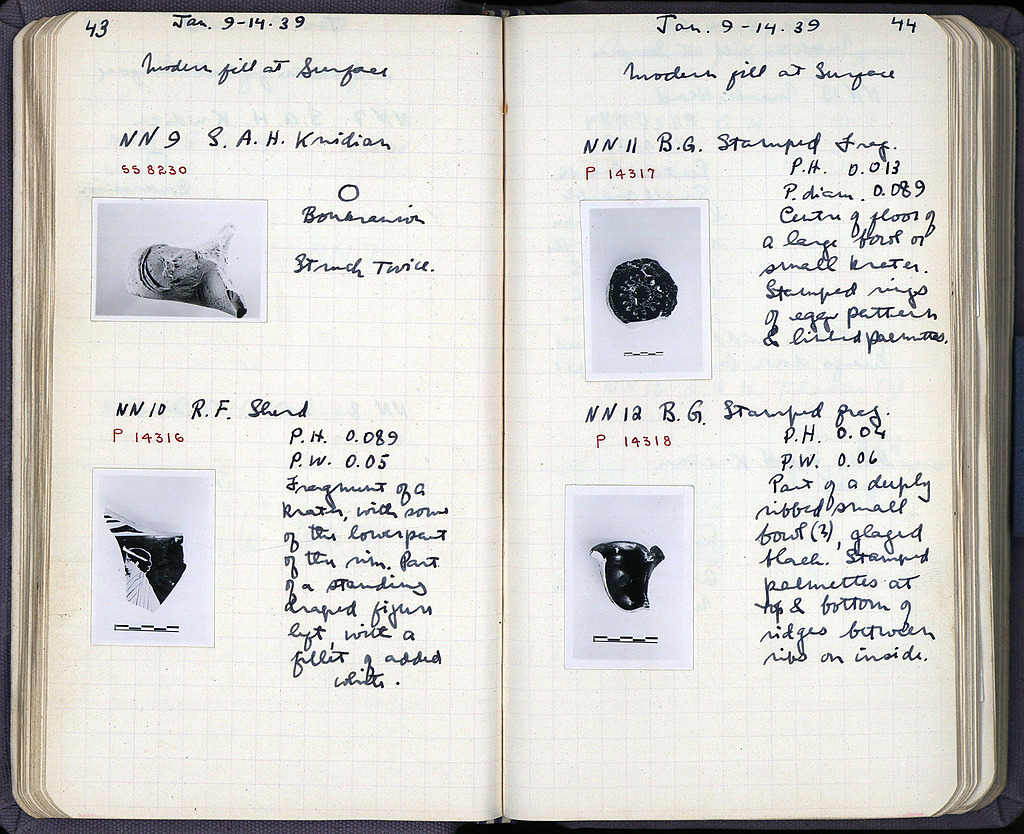 43
Jan. 9-14.39
Modern fill at Surface
NN 9 S. A. H. Knidian
SS 8230
Boukranion
Struck Twice.
NN 10 R. F. Sherd
P 14316
P. H. 0.089
P. W. 0.05
Fragment of a
krater, with some
of the lower part
of the rim. Part
of a standing
draped figure
left, with a
fillet of added
white.
44
Jan. 9-14.39
Modern fill at Surface
NN 11 B.G. Stamped Frag.
P 14317
P.H. 0.013
P. diam. 0.089
Centre of floor of
a large bowl or
small krater.
Stamped rings
of egg pattern
& linked palmettes.
NN 12 B.G. Stamped frag.
P 14318
P.H. 0.04
P.W. 0.06
Part of a deeply
ribbed small
bowl (?), glazed
black. Stamped
palmettes at
top & bottom of
ridges between
ribs on inside.